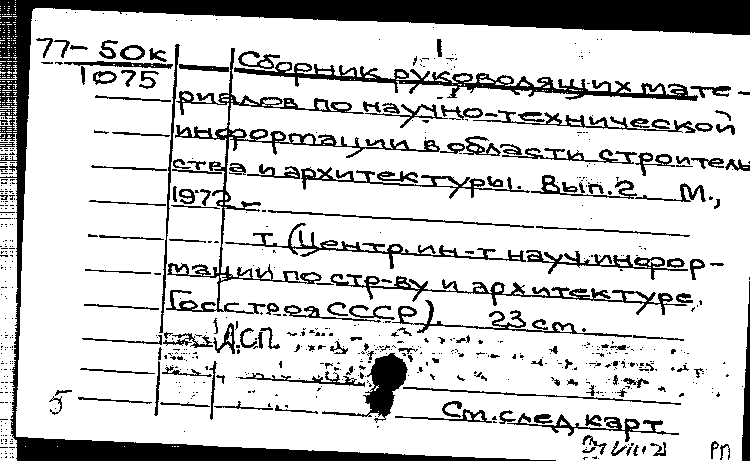 1
77-50к Сборник руководящих мате-
1075
риалов по научно-технической
информации в области строитель
ства и архитектуры. Вып.2. М.,
1972-
т. (Центр. ин-т науч. инфор-
мации по стр-ву и архитектуре
Госстроя СССР). 23 см.
Д.С.П.
5
См. след. карт
РП